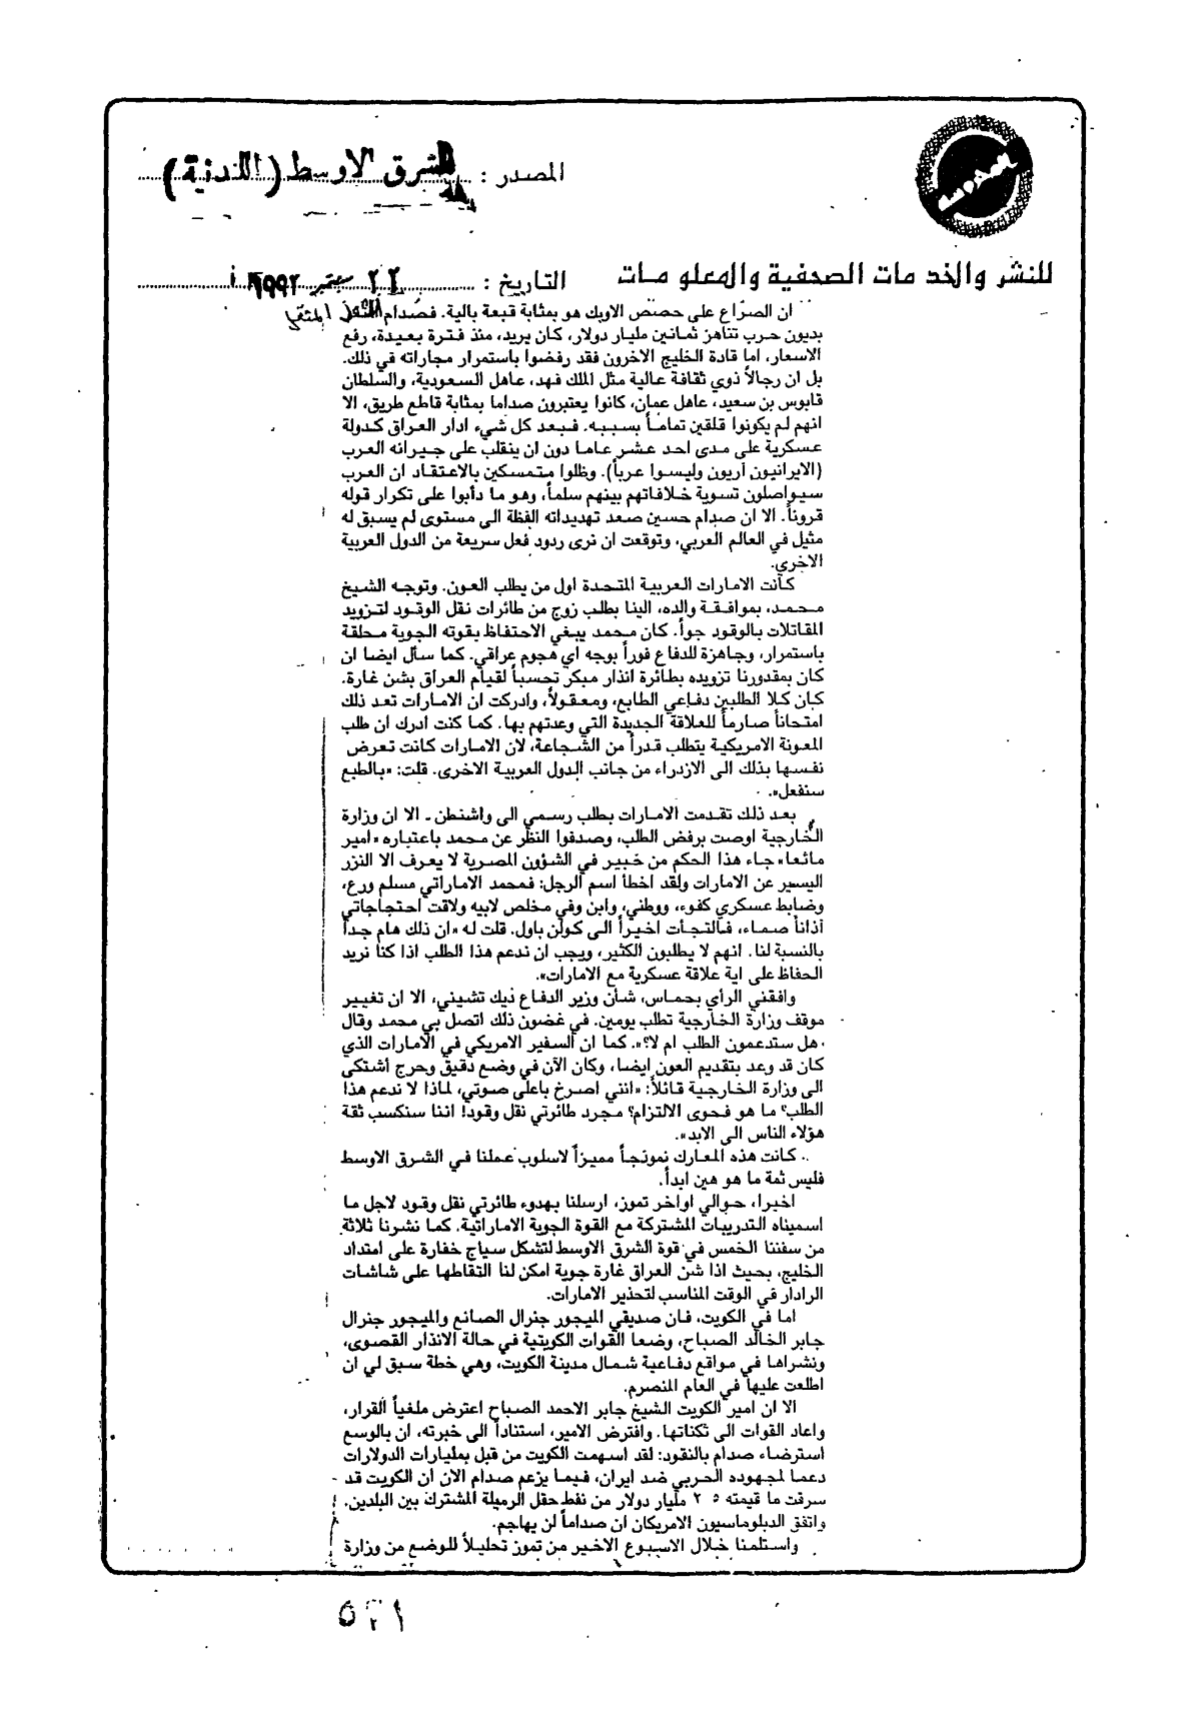 المصدر : الشرق الاوسط (اللندنية)
للنشر والخدمات الصحفية والمعلومات
التاريخ : ٢٢ سبتمبر ١٩٩٢
ان الصراع على حصص الاوبك هو بمثابة قبعة بالية. فصدام المثقل
بديون حرب تناهز ثمانين مليار دولار، كان يريد، منذ فترة بعيدة، رفع
الاسعار، اما قادة الخليج الاخرون فقد رفضوا باستمرار مجاراته في ذلك.
بل ان رجالاً ذوي ثقافة عالية مثل الملك فهد، عاهل السعودية، والسلطان
قابوس بن سعيد، عاهل عمان، كانوا يعتبرون صداما بمثابة قاطع طريق، الا
انهم لم يكونوا قلقين تماماً بسببه. فبعد كل شيء ادار العراق كدولة
عسكرية على مدى احد عشر عاما دون ان ينقلب على جيرانه العرب
(الايرانيون آريون وليسوا عرباً). وظلوا متمسكين بالاعتقاد ان العرب
سيواصلون تسوية خلافاتهم بينهم سلماً، وهو ما دأبوا على تكرار قوله
قروناً. الا ان صدام حسين صعد تهديداته الفظة الى مستوى لم يسبق له
مثيل في العالم العربي، وتوقعت ان نرى ردود فعل سريعة من الدول العربية
الاخرى.
كانت الامارات العربية المتحدة اول من يطلب العون. وتوجه الشيخ
محمد، بموافقة والده، الينا بطلب زوج من طائرات نقل الوقود لتزويد
المقاتلات بالوقود جواً. كان محمد يبغي الاحتفاظ بقوته الجوية محلقة
باستمرار، وجاهزة للدفاع فوراً بوجه اي هجوم عراقي. كما سأل ايضا ان
كان بمقدورنا تزويده بطائرة انذار مبكر تحسباً لقيام العراق بشن غارة.
كان كلا الطلبين دفاعي الطابع، ومعقولاً، وادركت ان الامارات تعد ذلك
امتحاناً صارماً للعلاقة الجديدة التي وعدتهم بها. كما كنت ادرك ان طلب
المعونة الامريكية يتطلب قدراً من الشجاعة، لان الامارات كانت تعرض
نفسها بذلك الى الازدراء من جانب الدول العربية الاخرى. قلت: «بالطبع
سنفعل».
بعد ذلك تقدمت الامارات بطلب رسمي الى واشنطن ـ الا ان وزارة
الخارجية اوصت برفض الطلب، وصدفوا النظر عن محمد باعتباره «امير
مائعا» جاء هذا الحكم من خبير في الشؤون المصرية لا يعرف الا النزر
اليسير عن الامارات ولقد اخطأ اسم الرجل: فمحمد الاماراتي مسلم ورع،
وضابط عسكري كفوء، ووطني، وابن وفي مخلص لابيه ولاقت احتجاجاتي
آذاناً صماء، فالتجأت اخيراً الى كولن باول. قلت له «ان ذلك هام جداً
بالنسبة لنا. انهم لا يطلبون الكثير، ويجب ان ندعم هذا الطلب اذا كنا نريد
الحفاظ على اية علاقة عسكرية مع الامارات».
وافقني الرأي بحماس، شأن وزير الدفاع ديك تشيني، الا ان تغيير
موقف وزارة الخارجية تطلب يومين. في غضون ذلك اتصل بي محمد وقال
«هل ستدعمون الطلب ام لا؟». كما ان السفير الامريكي في الامارات الذي
كان قد وعد بتقديم العون ايضا، وكان الآن في وضع دقيق وحرج أشتكى
الى وزارة الخارجية قائلاً: «انني اصرخ باعلى صوتي، لماذا لا ندعم هذا
الطلب؟ ما هو فحوى الالتزام؟ مجرد طائرتي نقل وقود! اننا سنكسب ثقة
هؤلاء الناس الى الابد».
كانت هذه المعارك نموذجاً مميزاً لاسلوب عملنا في الشرق الاوسط
فليس ثمة ما هو هين ابداً.
اخيرا، حوالي اواخر تموز، ارسلنا بهدوء طائرتي نقل وقود لاجل ما
اسميناه التدريبات المشتركة مع القوة الجوية الاماراتية. كما نشرنا ثلاثة
من سفننا الخمس في قوة الشرق الاوسط لتشكل سياج خفارة على امتداد
الخليج، بحيث اذا شن العراق غارة جوية امكن لنا التقاطها على شاشات
الرادار في الوقت المناسب لتحذير الامارات.
اما في الكويت، فان صديقي الميجور جنرال الصانع والميجور جنرال
جابر الخالد الصباح، وضعا القوات الكويتية في حالة الانذار القصوى،
ونشراها في مواقع دفاعية شمال مدينة الكويت، وهي خطة سبق لي ان
اطلعت عليها في العام المنصرم.
الا ان امير الكويت الشيخ جابر الاحمد الصباح اعترض ملغياً القرار،
واعاد القوات الى ثكناتها. وافترض الامير، استناداً الى خبرته، ان بالوسع
استرضاء صدام بالنقود: لقد اسهمت الكويت من قبل بمليارات الدولارات
دعما لمجهوده الحربي ضد ايران، فيما يزعم صدام الان ان الكويت قد
سرقت ما قيمته ٢٥ مليار دولار من نفط حقل الرميلة المشترك بين البلدين.
واتفق الدبلوماسيون الامريكان ان صداماً لن يهاجم.
واستلمنا خلال الاسبوع الاخير من تموز تحليلاً للوضع من وزارة